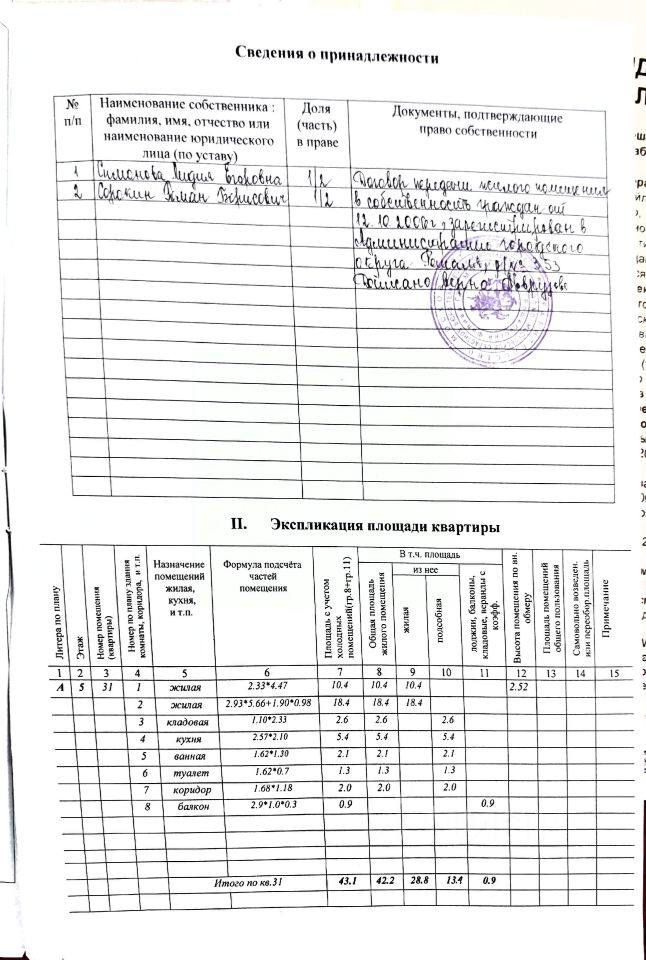 Сведения о принадлежности
№ п/п | Наименование собственника : фамилия, имя, отчество или наименование юридического лица (по уставу) | Доля (часть) в праве | Документы, подтверждающие право собственности
1 | Симонова Лидия Егоровна | 1/2 | Договор передачи жилого помещения
2 | Сорокин Роман Борисович | 1/2 | в собственность граждан от
12.10.2006г, зарегистрирован в
Администрации городского
округа
верно
II. Экспликация площади квартиры
Литера по плану | Этаж | Номер помещения (квартиры) | Номер по плану здания комнаты, коридора, и т.п. | Назначение помещений жилая, кухня, и т.п. | Формула подсчёта частей помещения | Площадь с учетом холодных помещений(гр.8+гр.11) | В т.ч. площадь | Общая площадь жилого помещения | из нее | жилая | подсобная | лоджии, балконы, кладовые, веранды с коэфф. | Высота помещения по вн. обмеру | Площадь помещений общего пользования | Самовольно возведен. или переобор.площадь | Примечание
1 | 2 | 3 | 4 | 5 | 6 | 7 | 8 | 9 | 10 | 11 | 12 | 13 | 14 | 15
А | 5 | 31 | 1 | жилая | 2.33*4.47 | 10.4 | 10.4 | 10.4 | 2.52
2 | жилая | 2.93*5.66+1.90*0.98 | 18.4 | 18.4 | 18.4
3 | кладовая | 1.10*2.33 | 2.6 | 2.6 | 2.6
4 | кухня | 2.57*2.10 | 5.4 | 5.4 | 5.4
5 | ванная | 1.62*1.30 | 2.1 | 2.1 | 2.1
6 | туалет | 1.62*0.7 | 1.3 | 1.3 | 1.3
7 | коридор | 1.68*1.18 | 2.0 | 2.0 | 2.0
8 | балкон | 2.9*1.0*0.3 | 0.9 | 0.9
Итого по кв.31 | 43.1 | 42.2 | 28.8 | 13.4 | 0.9